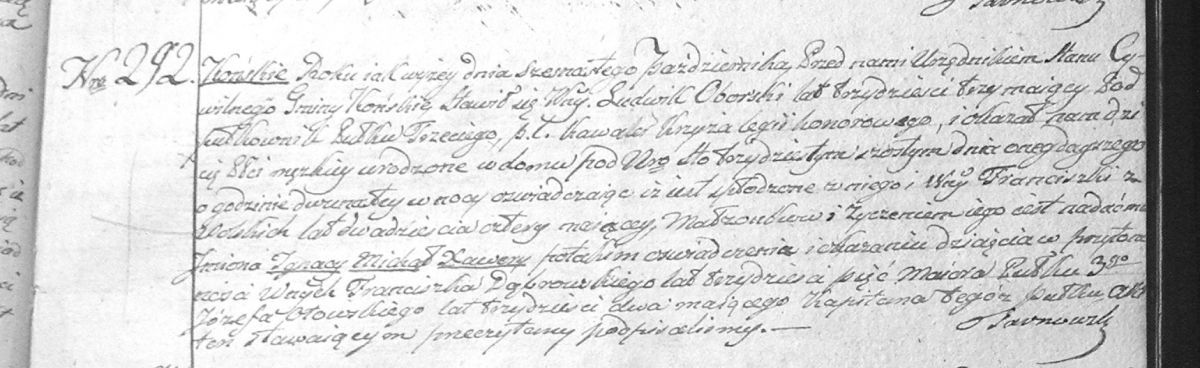 Nro 292. Końskie Roku iak wyżey dnia szesnastego Października, Przed nami Urzędnikiem Stanu Cy-
wilnego Gminy Końskie Stawił się Wny. Ludwik Oborski lat trzydzieści trzy maiący Pod
pułkownik Pułku Trzeciego, p. l. Kawaler Krzyża legii honorowego, i okazał nam dzi
cię Płci męzkiey urodzone w domu pod Nro Sto trzydziestym szóstym dnia onegdayszego
o godzinie dwunastey w nocy oswiadczaiąc iż iest spłodzone z niego i Wny Franciszki z
Wolskich lat dwadziescia cztery maiącey, Małżonków i życzeniem iego iest nadać mu
Imiona Ignacy Michał Xawery po takim oswiadczeniu i okazaniu dziącięcia w przytom
ności Wnych Franciszka Dąbrowskiego lat trzydzieści pięć Maiora Pułku 3go
Józefa lat trzydzieści dwa maiącego Kapitana tegóż Pułku, Akt
ten Stawaiącym przeczytany podpisaliśmy. —
Tarnowski